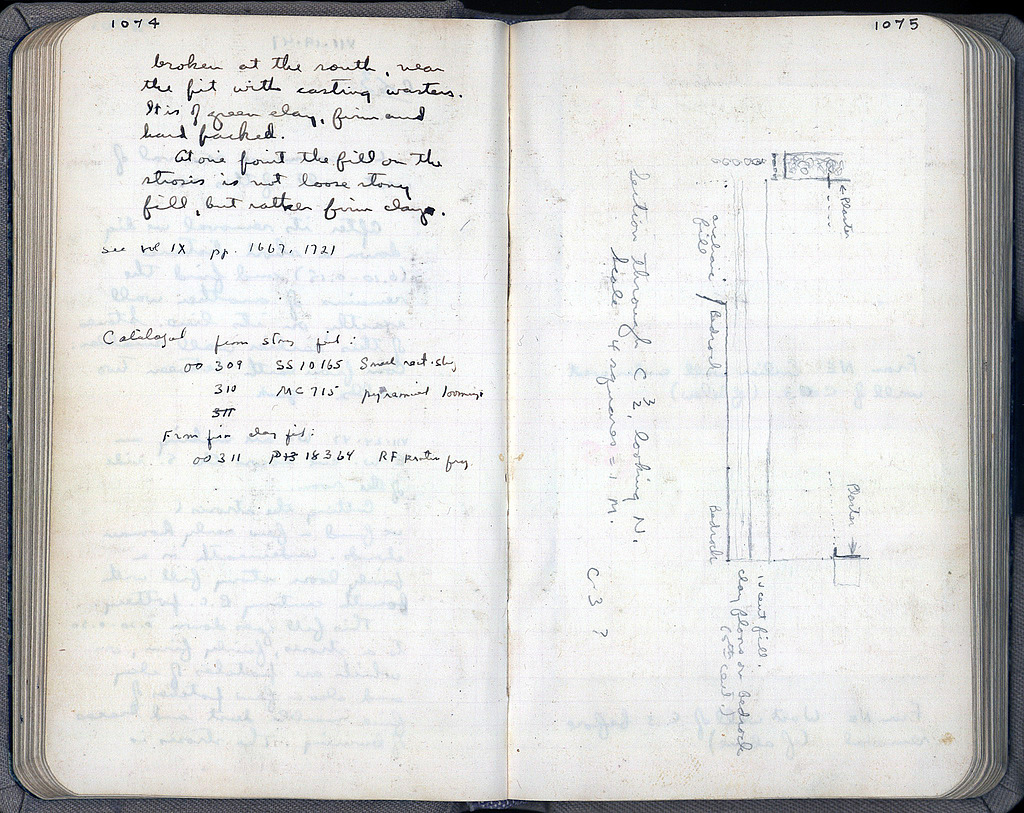 1074
broken at the south, near
the pit with casting wasters.
It is of green clay, firm and
hard packed.
At one point the fill on the
strosis is not loose stony
fill, but rather firm clay.
see vol IX pp. 1667, 1721
Catalogued from stony fill:
OO 309 SS 10165 Small
310 MC 715 pyramidal loomwgt
311
From firm clay fill:
OO 311 P 18364 RF krater frag.
1075
Plaster
Section through C 3, looking N.
Scale 4 squares = 1 M.
archaic fill
Bedrock
Plaster
Bedrock
iv cent fill.
clay floors on Bedrock
(5th cent.)
C 3 ?